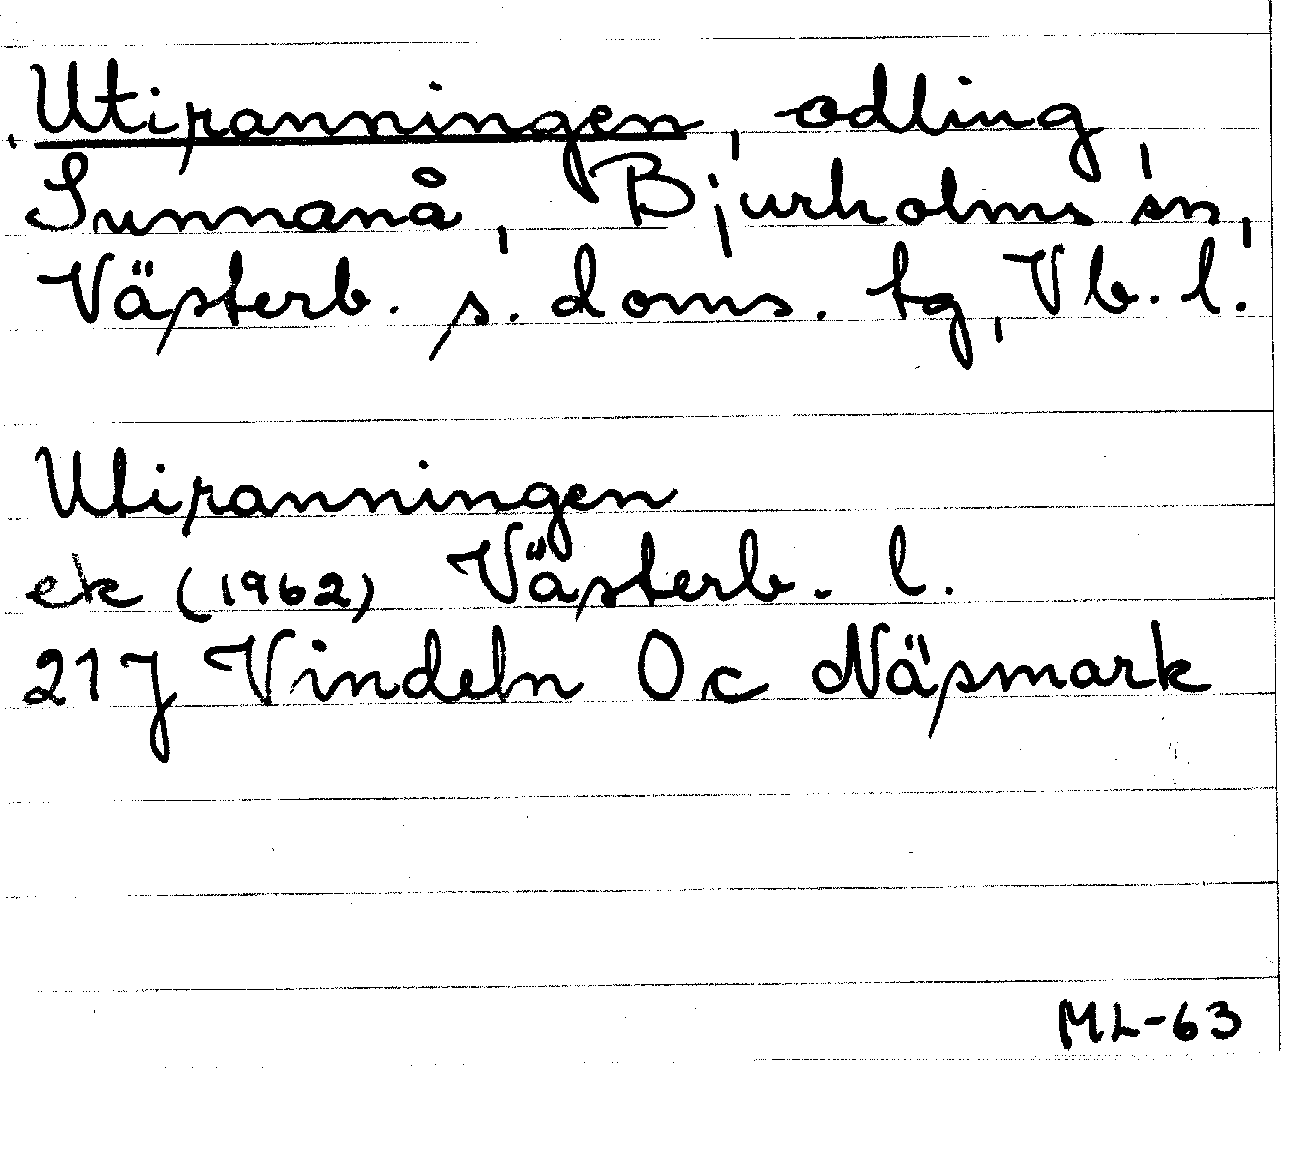 Utiranningen, odling
Sunnanå, Bjurholms sn,
Västerb. s. doms. tg, Vb. l.
Utiranningen
ek (1962) Västerb. l.
21J Vindeln Oc Näsmark
ML-63